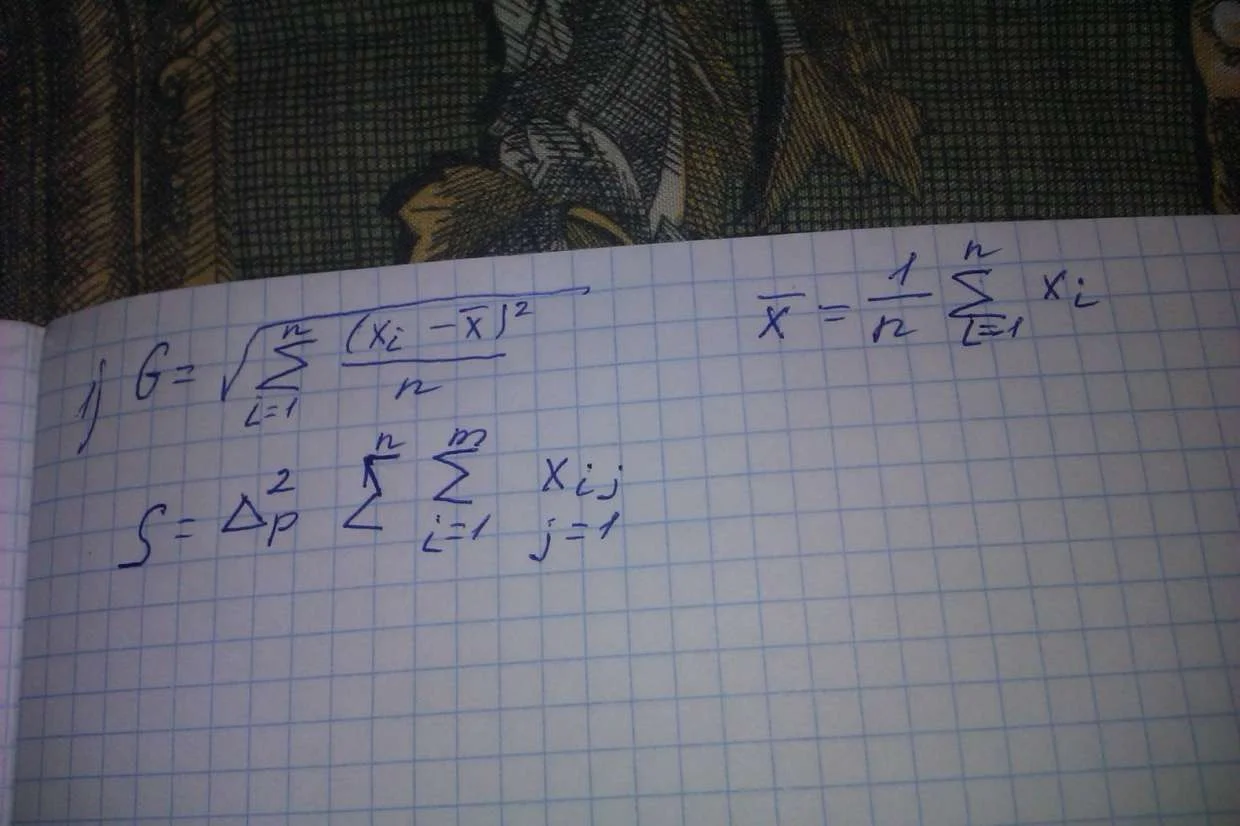 1) G = √ Σ_{i=1}^{n} (x_i − x̄)² / n   x̄ = 1/n Σ_{i=1}^{n} x_i
S = Δ_p² Σ^{n} Σ_{i=1}^{m} x_{ij} j=1